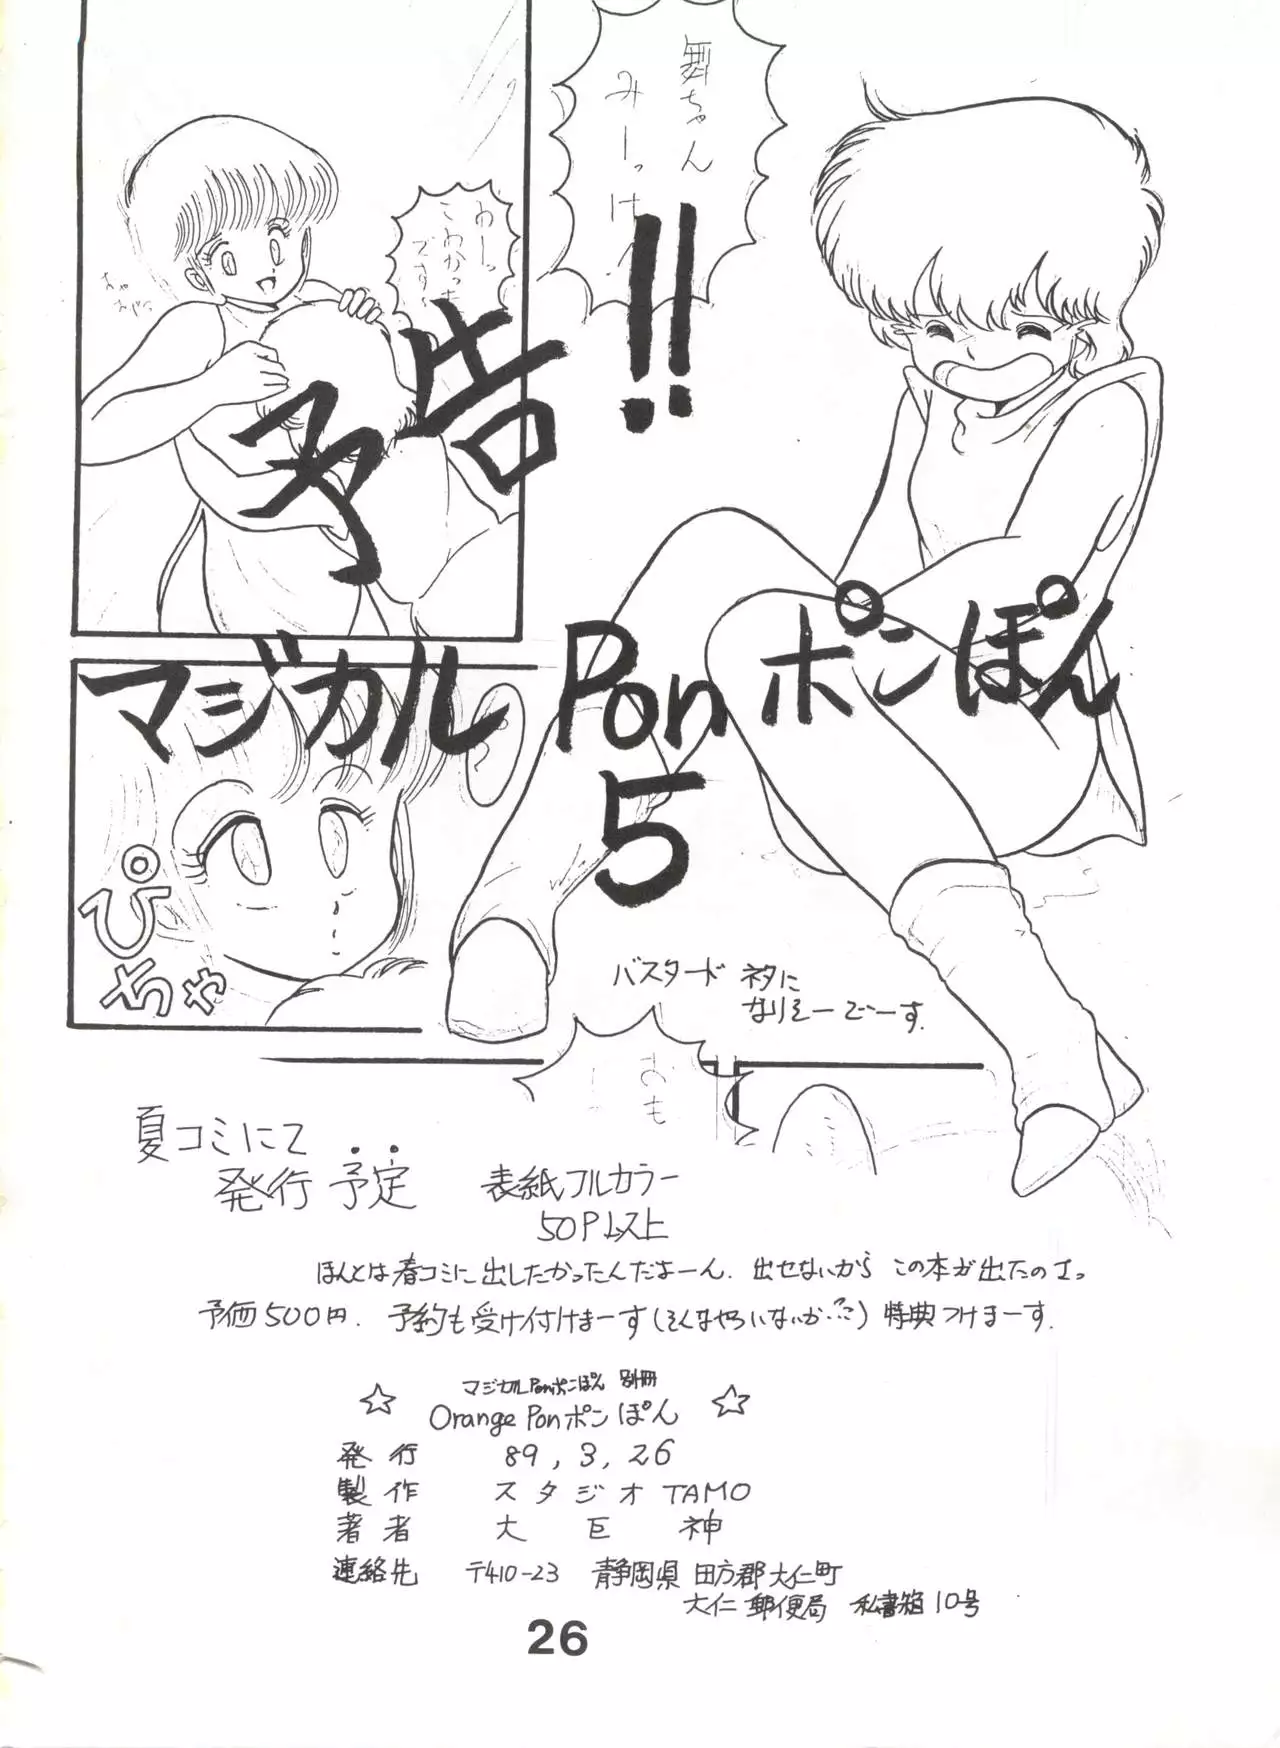 舞ちゃん
みーっけ
予告!!
マジカル Pon ポンぽん
5
ぴちゃ
バスタード ネタに
なりそーでーす.
おも
夏コミにて
発行予定
表紙フルカラー
50P以上
ほんとは春コミに出したかったんだよーん. 出せないから この本が出たのさっ
予価500円. 予約も受け付けまーす(そんなやついないか…?) 特典つけまーす.
マジカルPonポンぽん 別冊
☆ Orange Pon ポンぽん ☆
発行 89, 3, 26
製作 スタジオ TAMO
著者 大巨神
連絡先 〒410-23 静岡県 田方郡 大仁町
大仁郵便局 私書箱10号
26